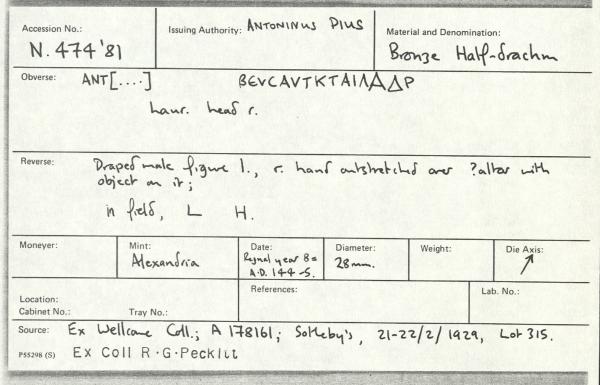 Accession No.:
N. 474'81
Issuing Authority: ANTONINUS PIUS
Material and Denomination:
Bronze Half-drachm
Obverse: ANT[....] BEVCAVTKTAIΛAΔP
laur. head r.
Reverse: Draped male figure l., r. hand outstretched over ?altar with
object on it;
in field, L H.
Moneyer:
Mint:
Alexandria
Date:
Regnal year 8 =
A.D. 144-5.
Diameter:
28mm.
Weight:
Die Axis:
↗
Location:
Cabinet No.: Tray No.:
References:
Lab. No.:
Source: Ex Wellcome Coll.; A 178161; Sotheby's, 21-22/2/1929, Lot 315.
P55298 (S) Ex Coll R.G.Peckitt